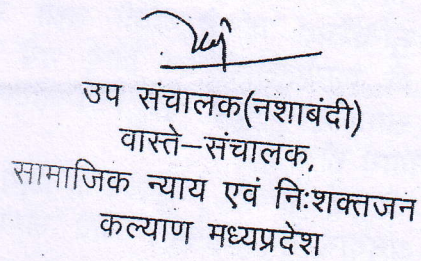 उप संचालक(नशाबंदी)
वास्ते–संचालक,
सामाजिक न्याय एवं नि:शक्तजन
कल्याण मध्यप्रदेश